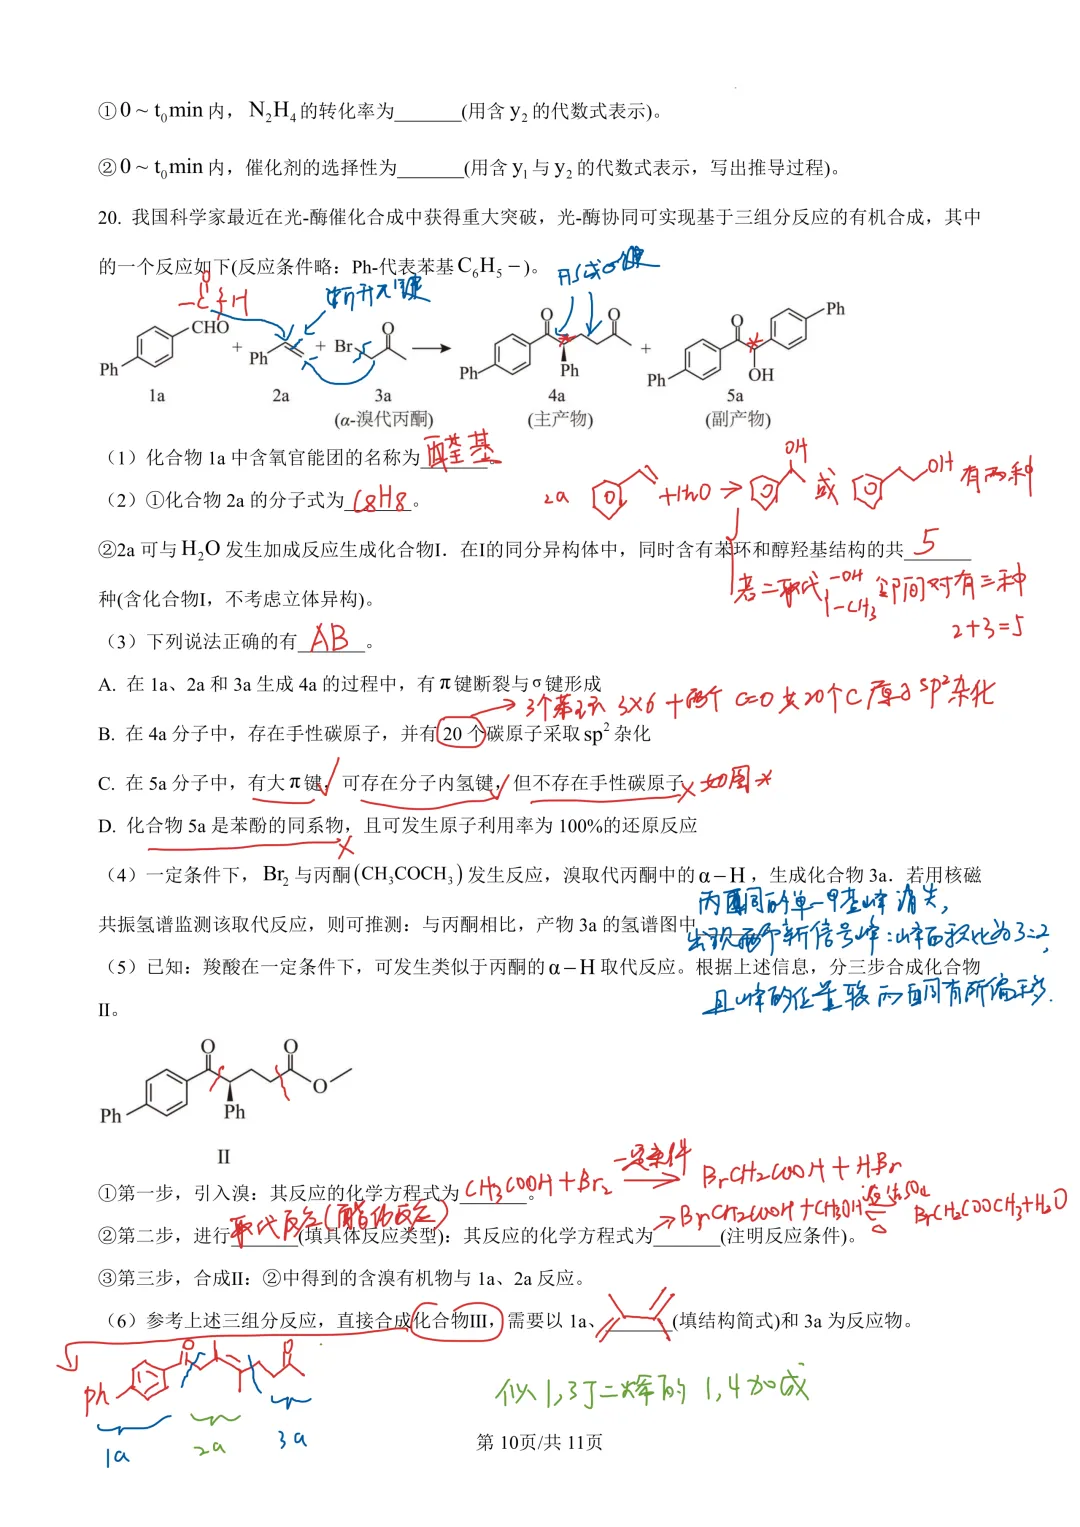 ①0 ~ t₀min 内，N₂H₄的转化率为_______(用含 y₂ 的代数式表示)。
②0 ~ t₀min 内，催化剂的选择性为_______(用含 y₁ 与 y₂ 的代数式表示，写出推导过程)。
20. 我国科学家最近在光-酶催化合成中获得重大突破，光-酶协同可实现基于三组分反应的有机合成，其中
的一个反应如下(反应条件略：Ph-代表苯基C₆H₅－)。
断开π键
形成σ键
-C-H
O
CHO + Ph + Br O → O O Ph + O Ph OH
Ph Ph Ph
1a 2a 3a 4a 5a
(α-溴代丙酮) (主产物) (副产物)
（1）化合物 1a 中含氧官能团的名称为 醛基 。
（2）①化合物 2a 的分子式为 C8H8 。
2a +H2O → OH 或 OH 有两种
②2a 可与 H₂O 发生加成反应生成化合物I．在I的同分异构体中，同时含有苯环和醇羟基结构的共 5
若二取代 -OH -CH₃ 邻间对有三种
种(含化合物I，不考虑立体异构)。
2+3=5
（3）下列说法正确的有 AB 。
A. 在 1a、2a 和 3a 生成 4a 的过程中，有π键断裂与σ键形成
3个苯环 3×6 + 两个 C=O 共20个C原子 sp²杂化
B. 在 4a 分子中，存在手性碳原子，并有 20 个碳原子采取 sp² 杂化
C. 在 5a 分子中，有大π键，可存在分子内氢键，但不存在手性碳原子 × 如图*
D. 化合物 5a 是苯酚的同系物，且可发生原子利用率为 100%的还原反应
（4）一定条件下，Br₂ 与丙酮(CH₃COCH₃)发生反应，溴取代丙酮中的α－H，生成化合物 3a．若用核磁
丙酮的单一甲基峰消失，
共振氢谱监测该取代反应，则可推测：与丙酮相比，产物 3a 的氢谱图中_______
出现两个新信号峰：峰面积比为3:2，
（5）已知：羧酸在一定条件下，可发生类似于丙酮的α－H 取代反应。根据上述信息，分三步合成化合物
且峰的位置较丙酮有所偏移.
II。
O O
O
Ph Ph
II
①第一步，引入溴：其反应的化学方程式为 CH3COOH + Br₂ 一定条件 → BrCH2COOH + HBr 。
②第二步，进行 取代反应(酯化反应) (填具体反应类型)：其反应的化学方程式为_______(注明反应条件)。
→ BrCH2COOH + CH3OH 浓H2SO4 △ BrCH₂COOCH₃+H₂O
③第三步，合成II：②中得到的含溴有机物与 1a、2a 反应。
（6）参考上述三组分反应，直接合成化合物III，需要以 1a、_______(填结构简式)和 3a 为反应物。
Ph O O
似1,3丁二烯的 1,4加成
1a 2a 3a
第 10页/共 11页